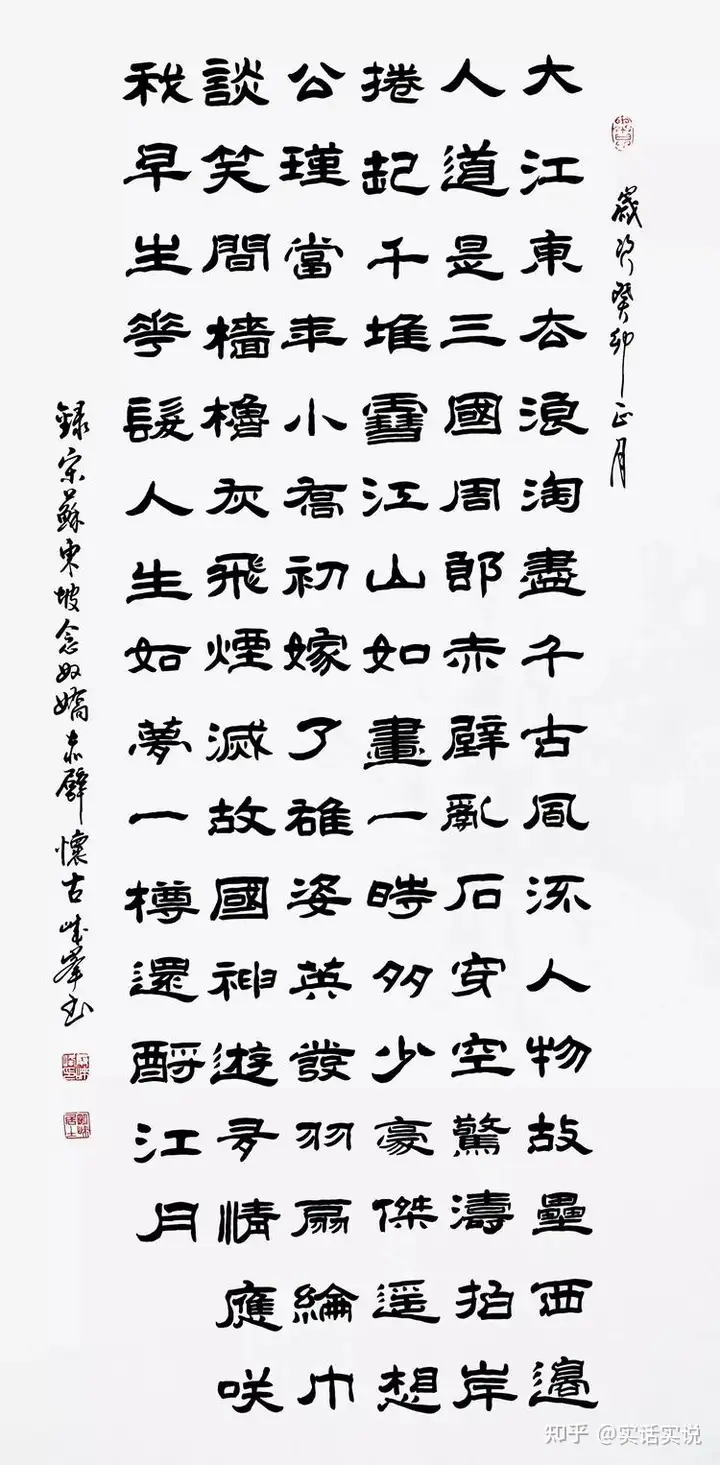 歲次癸卯正月
大江東去浪淘盡千古風流人物故壘西邊
人道是三國周郎赤壁亂石穿空驚濤拍岸
捲起千堆雪江山如畫一時多少豪傑遥想
公瑾當年小喬初嫁了雄姿英發羽扇綸巾
談笑間檣櫓灰飛煙滅故國神遊多情應咲
我早生華髮人生如夢一樽還酹江月
錄宋蘇東坡念奴嬌赤壁懷古峯书
知乎 @实话实说